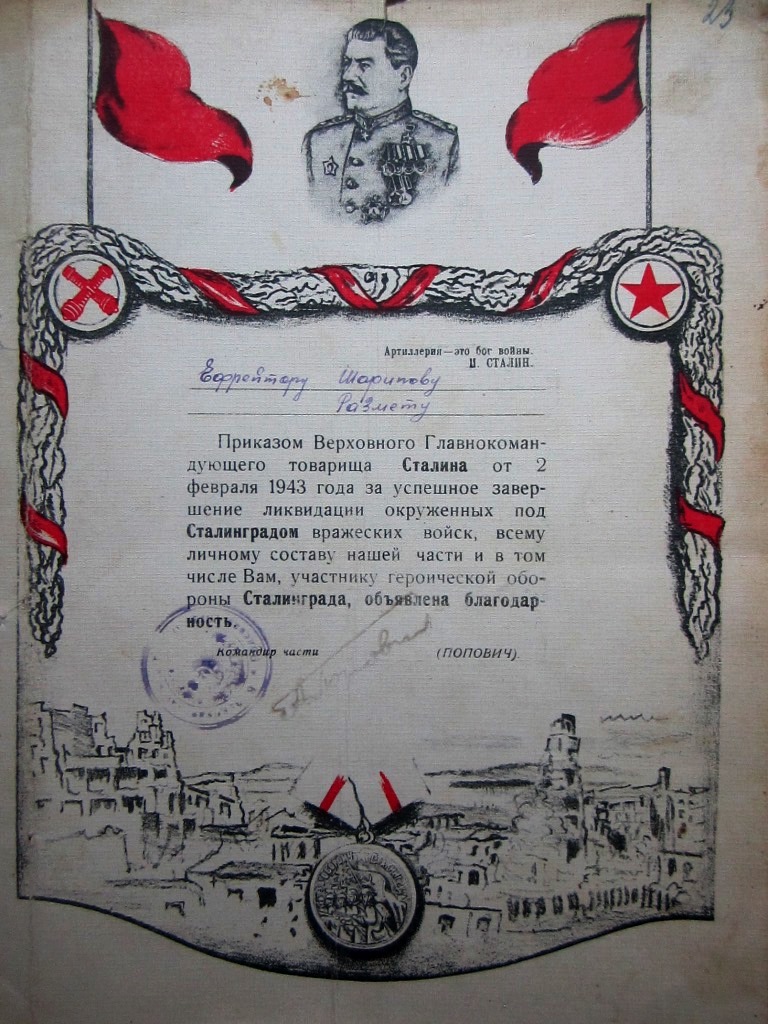 23
Артиллерия — это бог войны.
И. СТАЛИН.
Ефрейтору Шарипову
Размету
Приказом Верховного Главнокоман-
дующего товарища Сталина от 2
февраля 1943 года за успешное завер-
шение ликвидации окруженных под
Сталинградом вражеских войск, всему
личному составу нашей части и в том
числе Вам, участнику героической обо-
роны Сталинграда, объявлена благодар-
ность.
Командир части (ПОПОВИЧ).